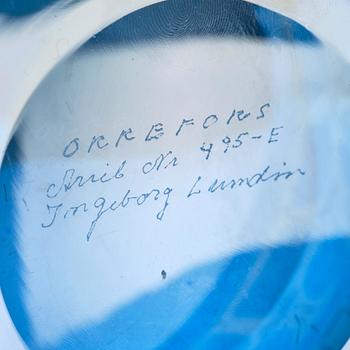 ORREFORS
Ariel Nr 495-E
Ingeborg Lundin